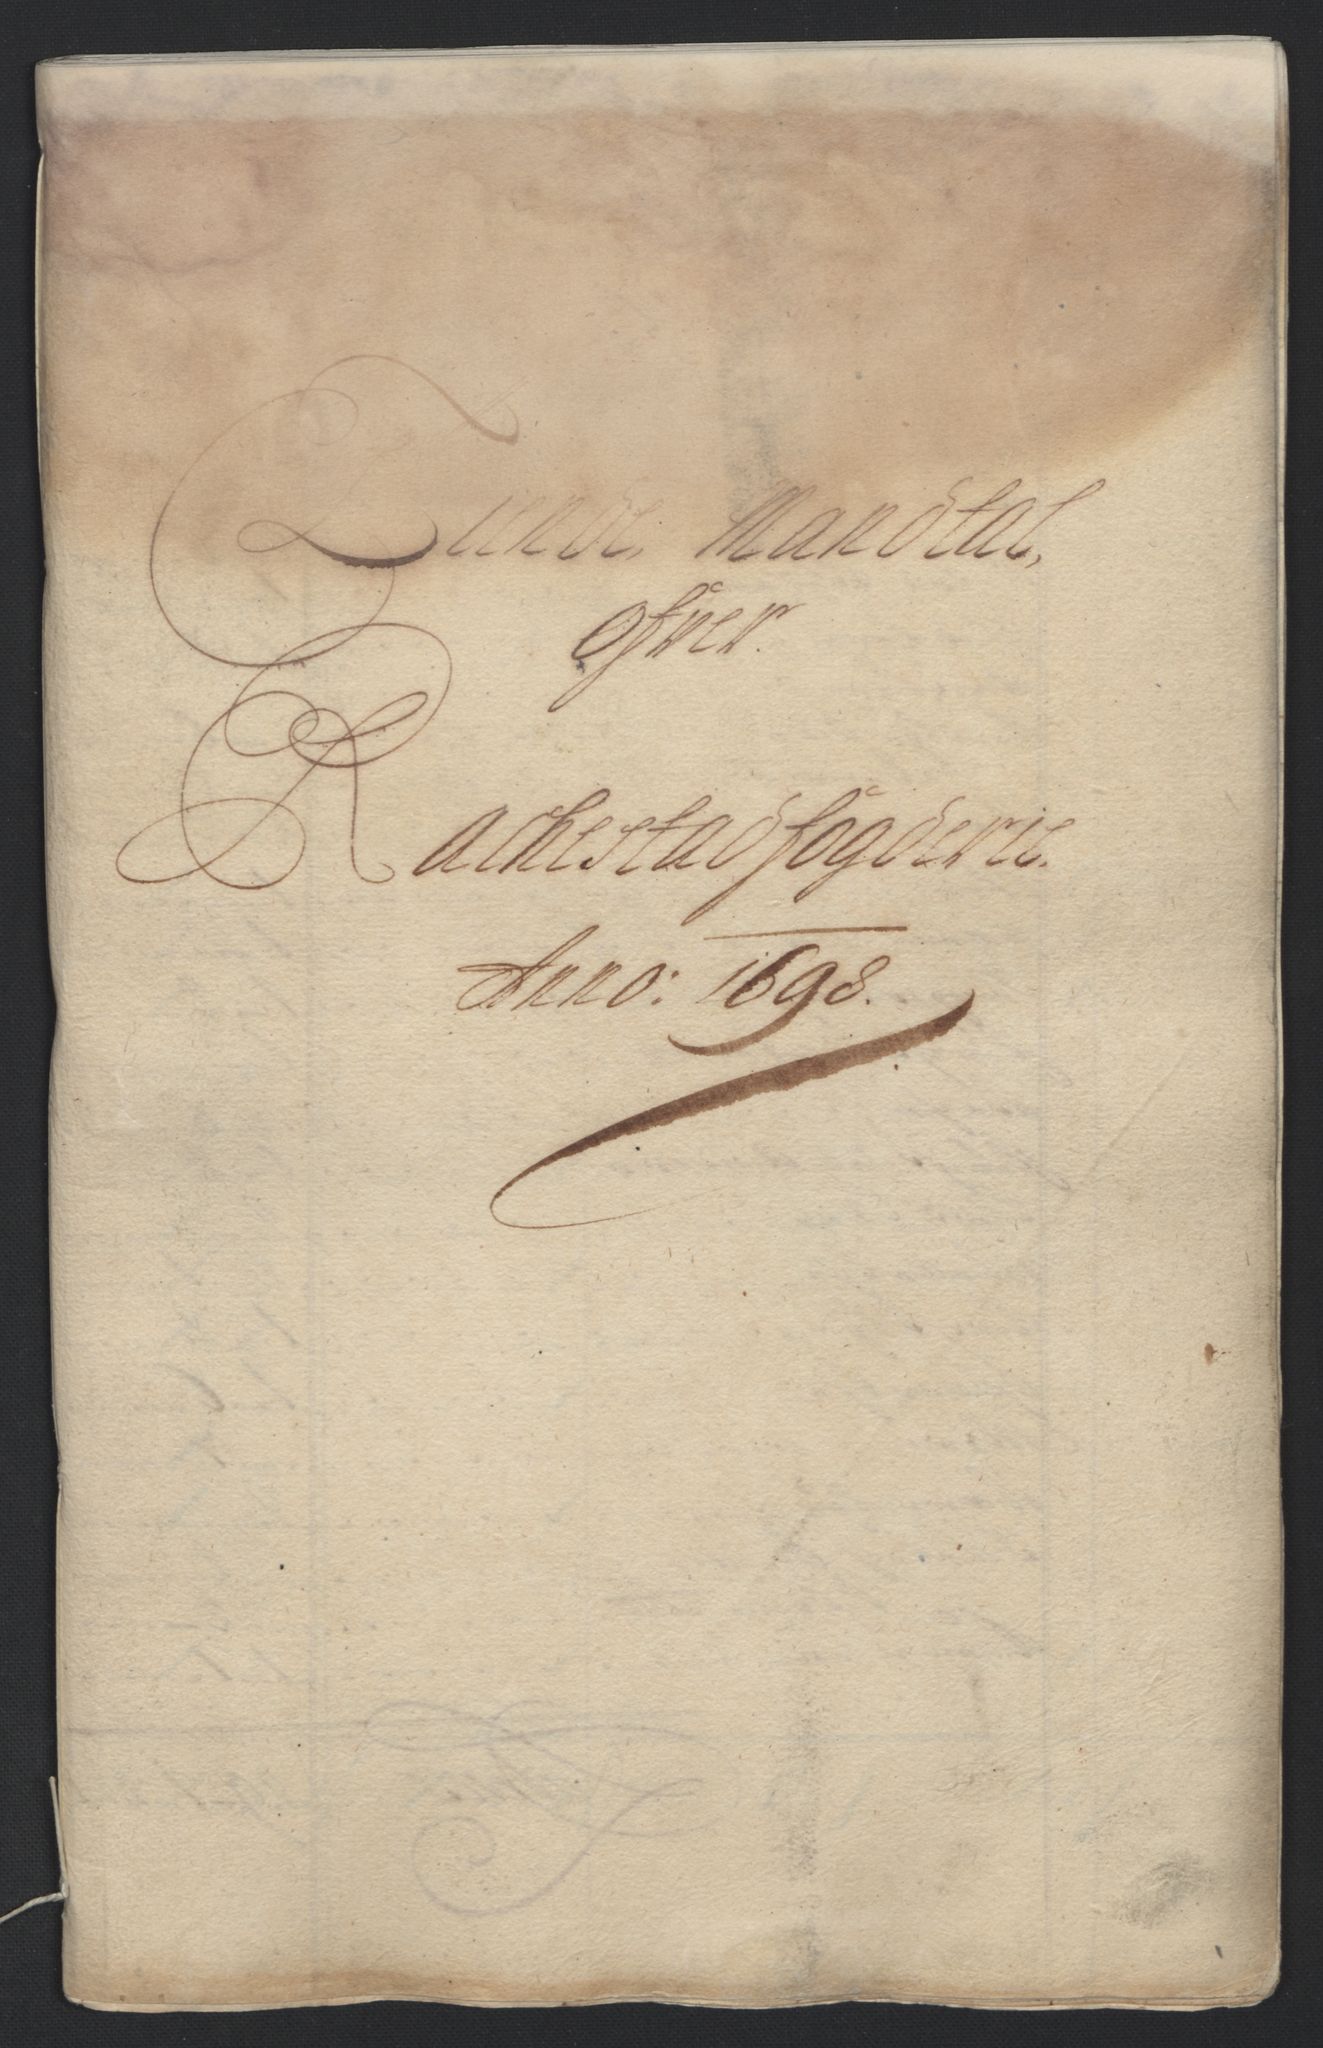 Tiende, Mandtal,
ofver.
Rachestad fogderie.
Anno: 1698.